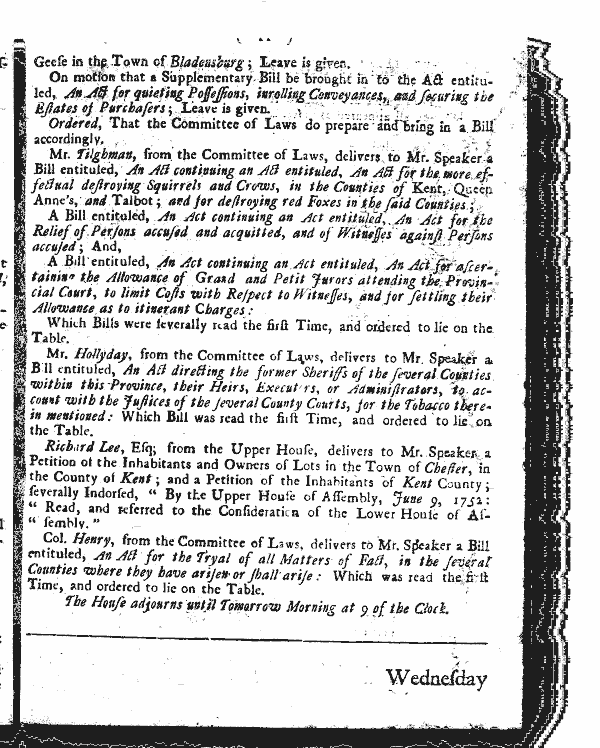 Geeſe in the Town of Bladensburg; Leave is given.
On motion that a Supplementary Bill be brought in to the Act entitu-
led, An Act for quieting Poſſeſſions, inrolling Conveyances, and ſecuring the
Eſtates of Purchaſers; Leave is given.
Ordered, That the Committee of Laws do prepare and bring in a Bill
accordingly.
Mr. Tilghman, from the Committee of Laws, delivers to Mr. Speaker a
Bill entituled, An Act continuing an Act entituled, An Act for the more ef-
fectual deſtroying Squirrels and Crows, in the Counties of Kent, Queen
Anne's, and Talbot; and for deſtroying red Foxes in the ſaid Counties;
A Bill entituled, An Act continuing an Act entituled, An Act for the
Relief of Perſons accuſed and acquitted, and of Witneſſes againſt Perſons
accuſed; And,
A Bill entituled, An Act continuing an Act entituled, An Act for aſcer-
taining the Allowance of Grand and Petit Jurors attending the Provin-
cial Court, to limit Coſts with Reſpect to Witneſſes, and for ſettling their
Allowance as to itinerant Charges:
Which Bills were ſeverally read the firſt Time, and ordered to lie on the
Table.
Mr. Hollyday, from the Committee of Laws, delivers to Mr. Speaker a
Bill entituled, An Act directing the former Sheriffs of the ſeveral Counties
within this Province, their Heirs, Executors, or Adminiſtrators, to ac-
count with the Juſtices of the ſeveral County Courts, for the Tobacco there-
in mentioned: Which Bill was read the firſt Time, and ordered to lie on
the Table.
Richard Lee, Eſq; from the Upper Houſe, delivers to Mr. Speaker a
Petition of the Inhabitants and Owners of Lots in the Town of Cheſter, in
the County of Kent; and a Petition of the Inhabitants of Kent County;
ſeverally Indorſed, “ By the Upper Houſe of Aſſembly, June 9, 1752:
“ Read, and referred to the Conſideration of the Lower Houſe of Aſ-
“ ſembly. ”
Col. Henry, from the Committee of Laws, delivers to Mr. Speaker a Bill
entituled, An Act for the Tryal of all Matters of Fact, in the ſeveral
Counties where they have ariſen or ſhall ariſe: Which was read the firſt
Time, and ordered to lie on the Table.
The Houſe adjourns until Tomorrow Morning at 9 of the Clock.
Wedneſday